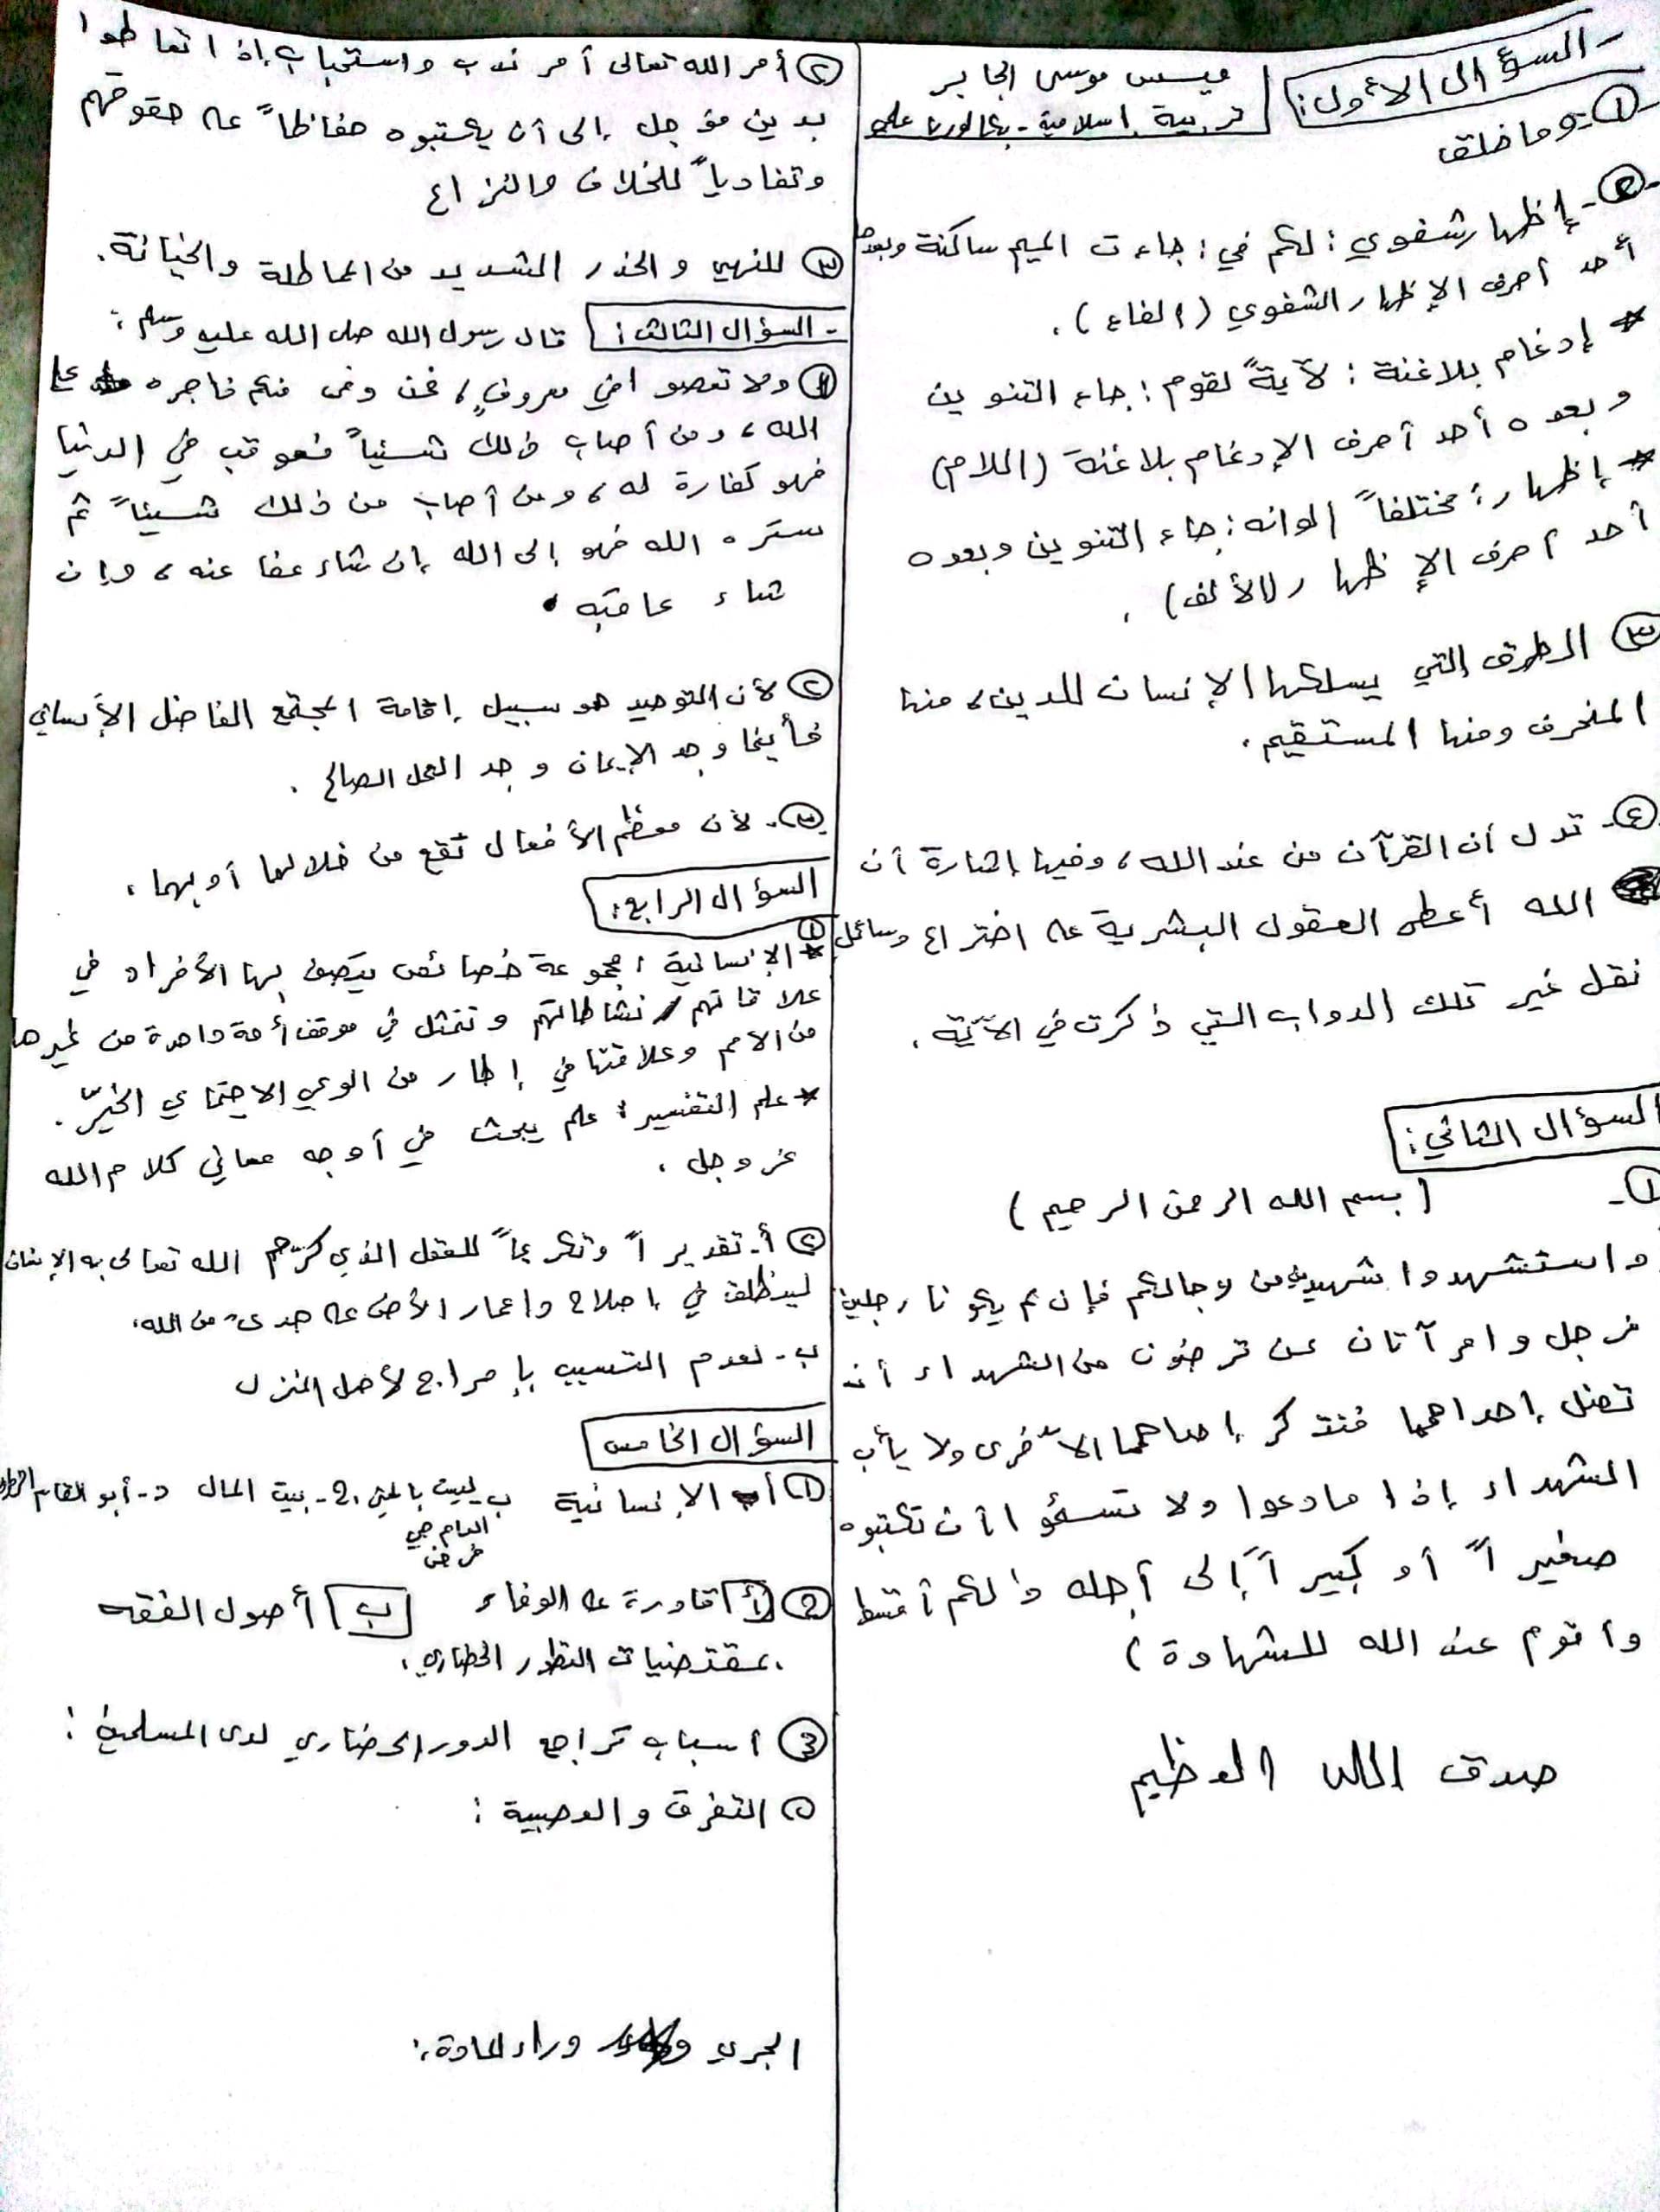 - السؤال الأول:
ميس موسى الجابر
تربية إسلامية - بكالوريا علمي
① - وما خلق
② - إظهار شفوي: لكم في: جاءت الميم ساكنة وبعدها
أحد أحرف الإظهار الشفوي (الفاء).
* إدغام بلاغنة: لآيةً لقوم: جاء التنوين
وبعده أحد أحرف الإدغام بلاغنة (اللام)
* إظهار: مختلفاً الوانه: جاء التنوين وبعده
أحد أحرف الإظهار (الألف).
③ الطرق التي يسلكها الإنسان للدين، منها
المنحرف ومنها المستقيم.
④ - تدل أن القرآن من عند الله، وفيها إشارة أن
الله أعطى العقول البشرية على اختراع وسائل
نقل غير تلك الدواب التي ذكرت في الآية.
السؤال الثاني:
① - (بسم الله الرحمن الرحيم)
واستشهدوا شهيدين من رجالكم فإن لم يكونا رجلين
فرجل وامرأتان ممن ترضون من الشهداء أن
تضل إحداهما فتذكر إحداهما الأخرى ولا يأب
الشهداء إذا مادعوا ولا تسئموا أن تكتبوه
صغيراً أو كبيراً إلى أجله ذلكم أقسط
وأقوم عند الله للشهادة)
صدق الله العظيم
② أمر الله تعالى أمر ندب واستحباب إذا تعاطوا
بدين مؤجل إلى أن يكتبوه حفاظاً على حقوقهم
وتفادياً للخلاف والنزاع
③ للنهي والحذر الشديد من المماطلة والخيانة.
- السؤال الثالث: قال رسول الله صلى الله عليه وسلم:
① ولا تعصوا في معروفٍ، فمن وفى منكم فأجره على
الله، ومن أصاب ذلك شيئاً فعوقب في الدنيا
فهو كفارة له، ومن أصاب من ذلك شيئاً ثم
ستره الله فهو إلى الله إن شاء عفا عنه، وإن
شاء عاقبه.
② لأن التوحيد هو سبيل إقامة المجتمع الفاضل الإنساني
فأينما وجد الإيمان وجد العمل الصالح.
③ - لأن معظم الأفعال تقع من خلالهما أو بهما.
السؤال الرابع:
①
* الإنسانية: مجموعة خصائص يتصف بها الأفراد في
علاقاتهم ونشاطاتهم وتتمثل في موقف أمة واحدة من غيرها
من الأمم وعلاقتها في إطار من الوعي الاجتماعي الخيّر.
* علم التفسير: علم يبحث في أوجه معاني كلام الله
عز وجل.
② أ- تقديراً وتكريماً للعقل الذي كرّم الله تعالى به الإنسان
لينطلق في إصلاح وإعمار الأرض على هدىً من الله.
ب- لعدم التسبب بإحراج لأهل المنزل
السؤال الخامس
① أ- الإنسانية ب- ج- بيت المال د- أبو القاسم
② أ قادرة على الوفاء ب أصول الفقه
بمقتضيات التطور الحضاري.
③ أسباب تراجع الدور الحضاري لدى المسلمين:
① التفرق والعصبية:
الجري وراء المادة: